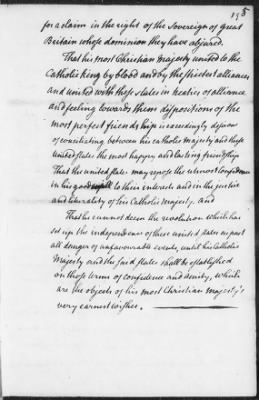 195
for a claim in the right of the Sovereign of great
Britain whose dominion they have abjured.
That his most Christian majesty united to the
Catholic king by blood and by the strictest alliances
and united with these states in treaties of alliance
and feeling towards them dispositions of the
most perfect friendship is exceedingly desirous
of conciliating between his catholic majesty and these
united states the most happy and lasting friendship
That the united states may repose the utmost confidence
in his good will to their interests and in the justice
and liberality of his Catholic majesty. and
That he cannot deem the revolution which has
set up the independence of these united states as past
all danger of unfavourable events, until his Catholic
Majesty and the said states shall be established
on those terms of confidence and amity, which
are the objects of his most Christian majesty's
very earnest wishes.